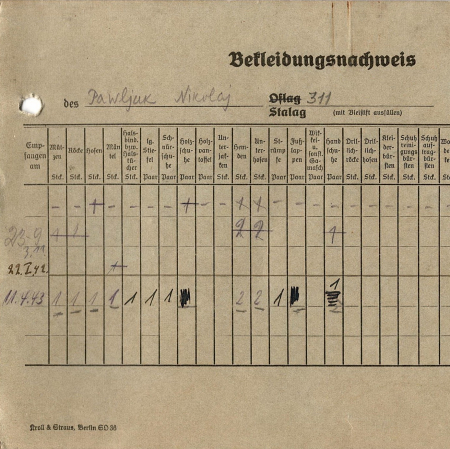 Bekleidungsnachweis
des Pawljuk Nikolaj Oflag 311
Stalag (mit Bleistift ausfüllen)
Empfangen am Mützen Röcke Hosen Mäntel Halsbind. bzw. -tücher Ig. Stiefel Schnürschuhe Holzschuhe Holzpantoffel Unterjacken Hemden Unterhosen Strümpfe Fußlappen Handschuhe Drillichröcke Drillichhosen Kleiderbürsten
Stck. Stck. Stck. Stck. Stck. Paar Paar Paar Paar Stck. Stck. Stck. Paar Paar Paar Paar Stck. Stck. Stck. Stck. Stck. Stck.
- - + - - - - + - - + + - - - - - - - - - -
23.9 + 1 2 2 1
3.11
22.I.42. +
1
11.4.43 1 1 1 1 1 1 1 2 2 1 2
Kroll & Straus, Berlin SO 36